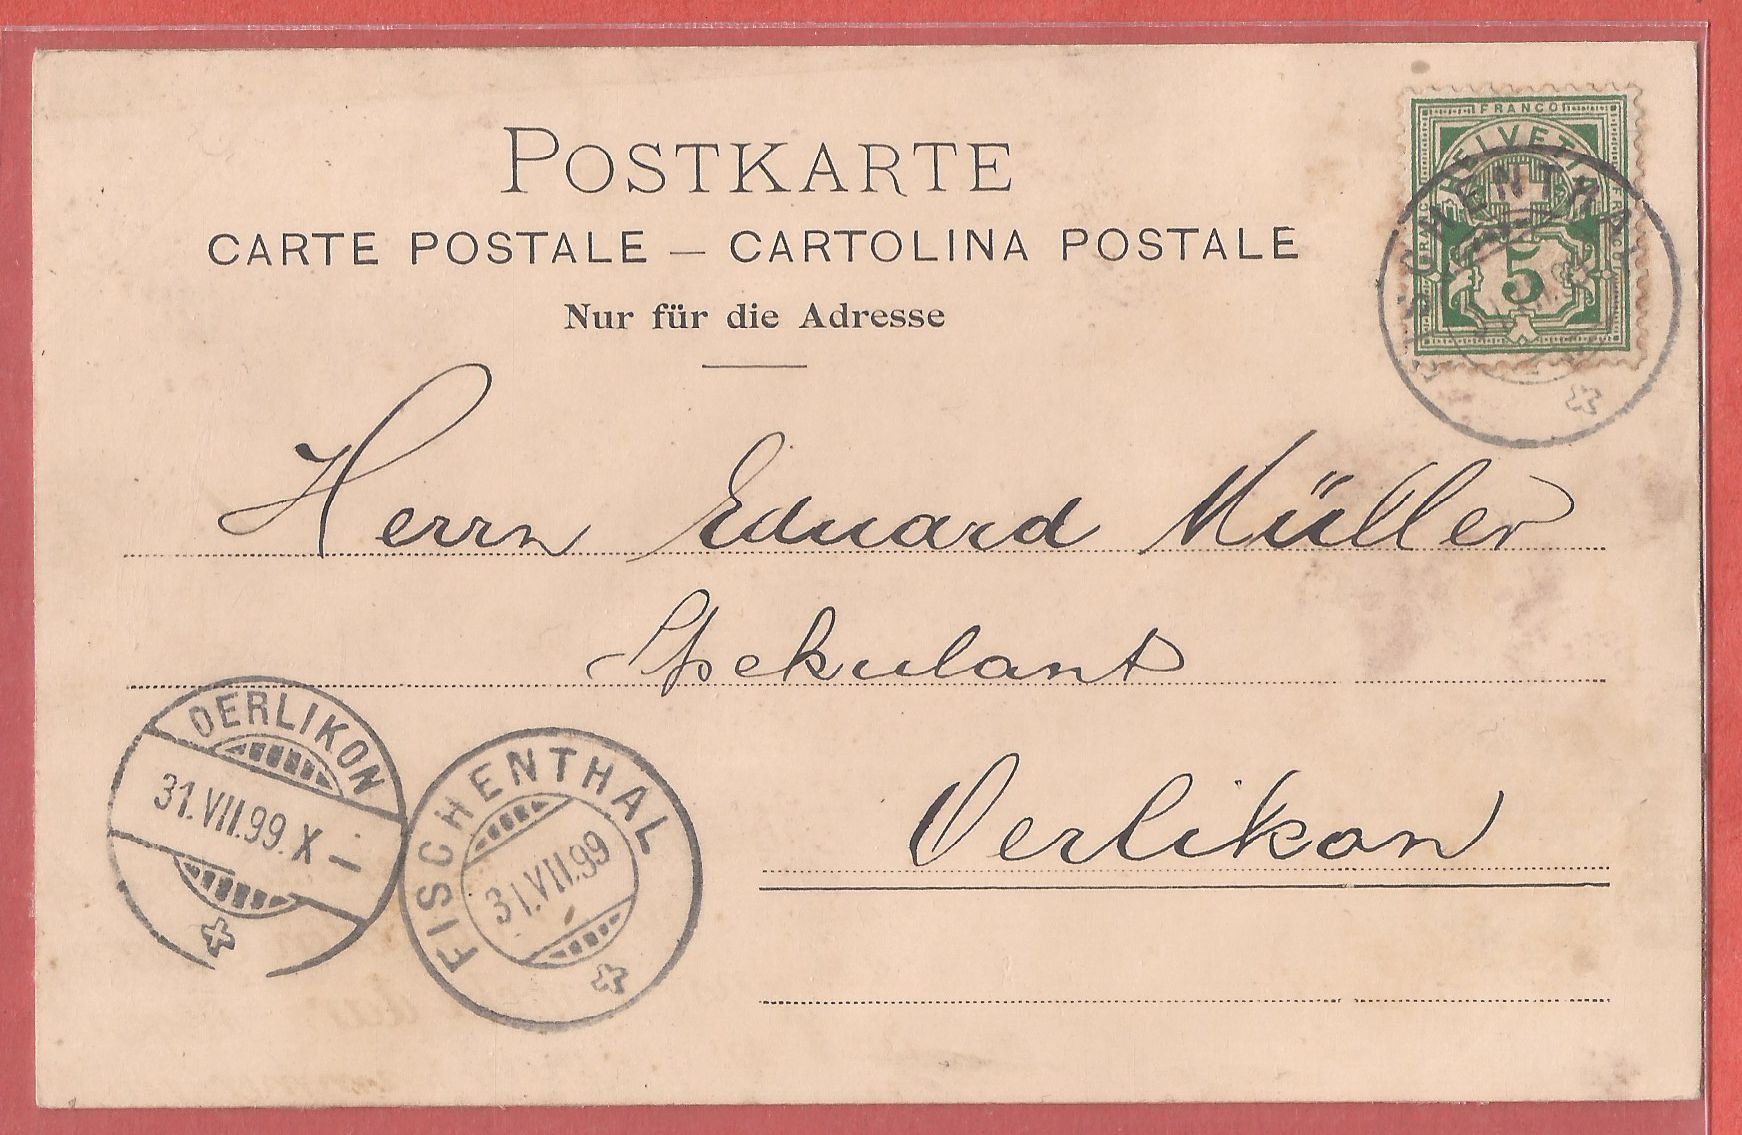 POSTKARTE
CARTE POSTALE — CARTOLINA POSTALE
Nur für die Adresse
FRANCO
HELVETIA
FRANCO
FRANCO
5
FISCHENTHAL
Herrn Eduard Müller
Spekulant
Oerlikon
OERLIKON
31.VII.99.X —
FISCHENTHAL
31.VII.99